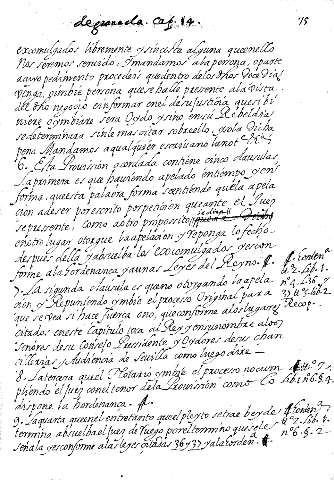 de granada. Cap. 14. 15
excomulgados libremente y sin costa alguna que en ello
nos seremos servido; i mandamos a la persona, o parte
a cuyo pedimento procedeis que dentro de los dhos doce dias
venga, o imbie persona que se halle presente a la vista
del dho negocio e informar en el de su justicia, que si vi
niere o imbiare sera oydo y sino en su Rebeldia
se determinara sin le mas citar sobre ello, so la dicha
pena Mandamos a qualquier escrivano la not
6. Esta Provision y ordada contiene cinco clausulas
La primera es que haviendo apelado in tiempo y en
forma, que esta palabra forma, sentiendo que la apela
cion a de ser por escrito por peticion que ante el Juez
se presente; como a otro proposito
en otro lugar otorgue la apelacion y reponga lo fecho
despues della y absuelba los excomulgados es con
forme a la hordenanza, y a unas Leyes del Reyno.
7. La segunda clausula es que no otorgando la apela
cion y Reponiendo imbie el proceso Original para
que se vea si hace fuerza o no, que conforme a los lugares
citados en este Capitulo con al Rey y en su nombre a los
señores de su Consejo Presidente y Oydores de sus chan
cillerias y Audiencia de Sevilla como luego dire —
8. La tercera que el Notario imbie el proceso no cum
pliendo el Juez con el tenor de la Provision como lo
dispone la hordenanza.
9. La quarta que en el entretanto que el pleyto se trae, ve y de
termina absuelba el Juez de Juego por el termino que se le
señala es conforme a las leyes citadas 36 y 37 y a la horden
hordena
n. 2. lib. 1.
n. 4.
Recop.
lib. 1. n. 5. 4.
hordena
n. 7. lib. 1.
n. 6. 5. 2.